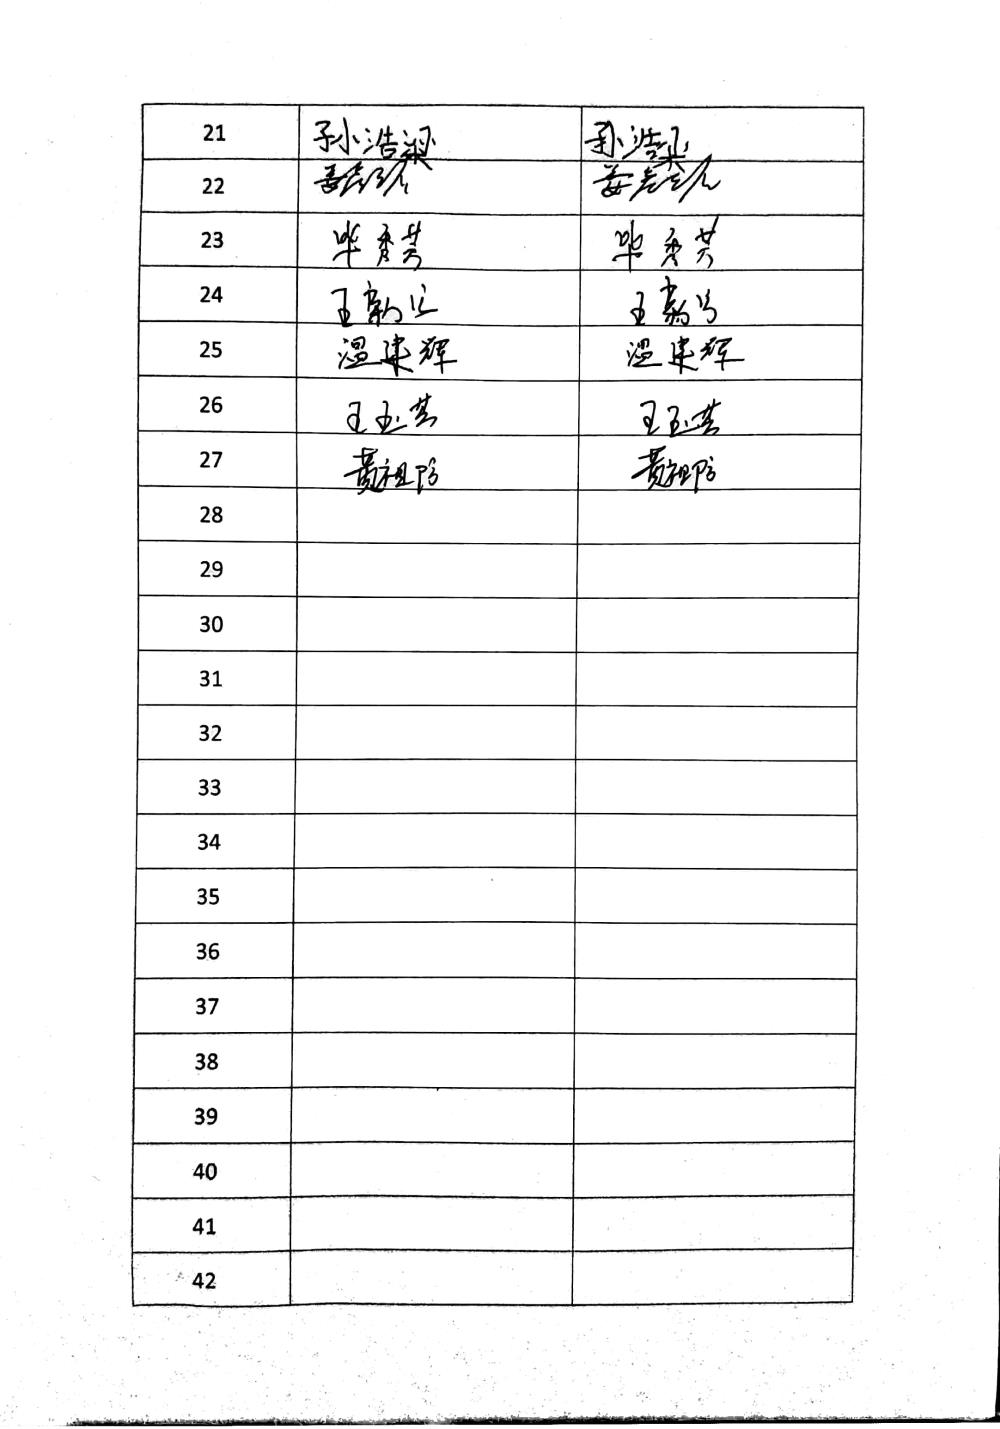 21 孙浩梁 孙浩梁
22
23 毕秀芳 毕秀芳
24 王新 王新
25 温建辉 温建辉
26 王玉芳 王玉芳
27 黄祖阶 黄祖阶
28
29
30
31
32
33
34
35
36
37
38
39
40
41
42